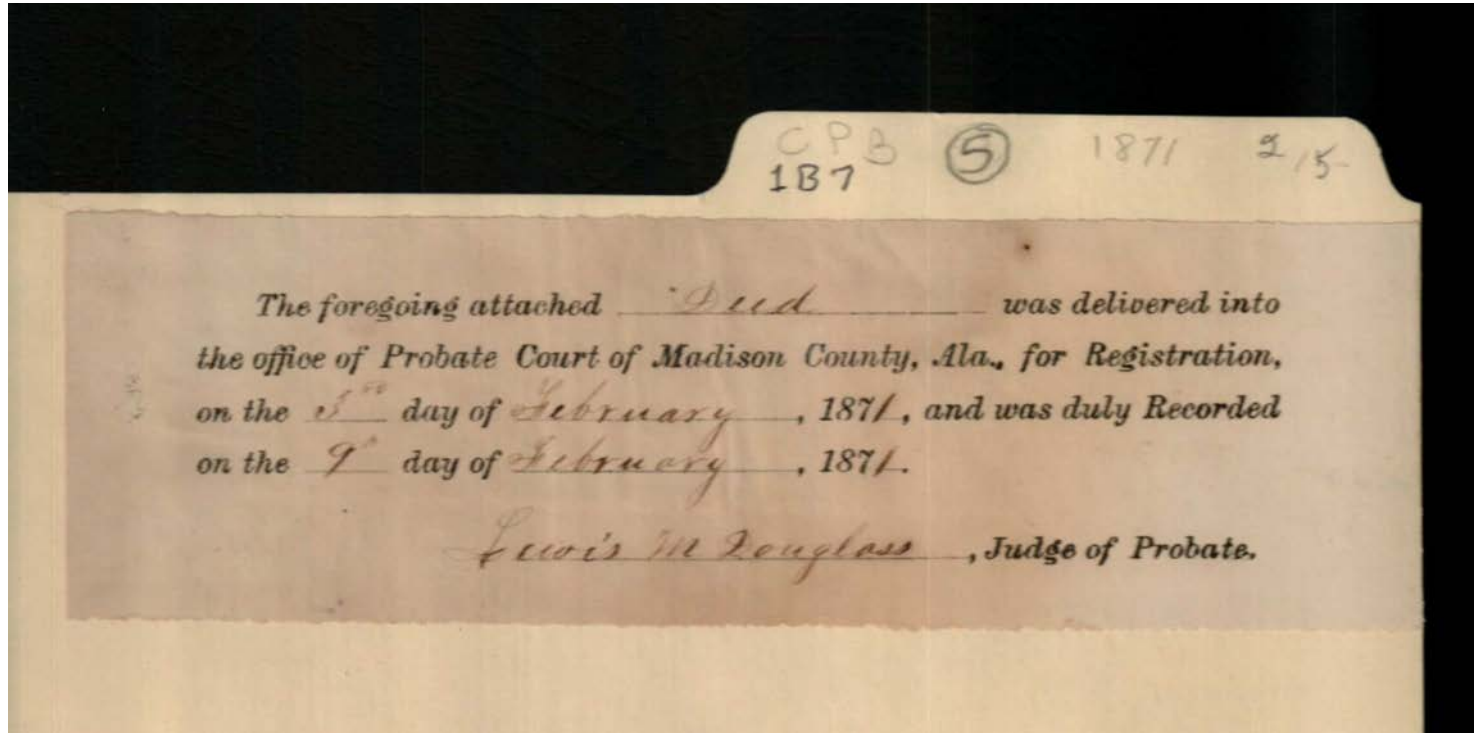 CPB (5) 1871 2/5
1B7
The foregoing attached Deed was delivered into
the office of Probate Court of Madison County, Ala., for Registration,
on the day of February, 1871, and was duly Recorded
on the 9th day of February, 1871.
Lewis M Douglass, Judge of Probate.